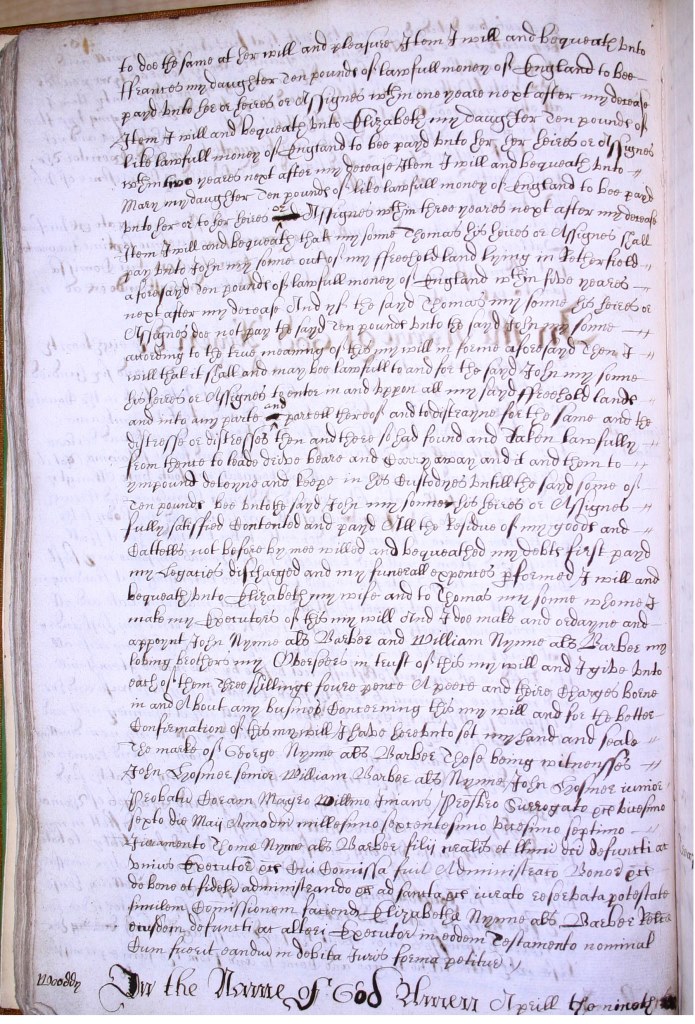 to doe the same at her will and pleasure Item I will and bequeath vnto
ffrances my daughter Ten pounds of lawfull money of England to bee
payd vnto her or heires or Assignes wthin one yeare next after my decease
Item I will and bequeath vnto Elizabeth my daughter Ten pounds of
like lawfull money of England to bee payd vnto her her heires or Assignes
wthin two yeares next after my decease Item I will and bequeath vnto
Mary my daughter Ten pounds of like lawfull money of England to bee payd
vnto her or to her heires or Assignes wthin three yeares next after my decease
Item I will and bequeath that my sonne Thomas his heires or Assignes shall
pay vnto John my sonne out of my ffreehold land lying in Petherfield
aforesayd Ten pounds of lawfull money of England wthin five yeares
next after my decease And yf the sayd Thomas my sonne his heires or
Assignes doe not pay the sayd Ten pounds vnto the sayd John my sonne
according to the true meaning of this my will in forme aforesayd Then I
will that it shall and may bee lawfull to and for the sayd John my sonne
his heires or Assignes to enter in and vppon all my sayd ffreehold lands
and into any parte and parcell thereof and to distrayne for the same and the
distresse or distresses then and there so had found and Taken lawfully
from thence to leade drive beare and Carry away and it and them to
ympound detayne and keepe in his Custodyes vntill the sayd some of
Ten pounds bee vnto the sayd John my sonne his heires or Assignes
fully satisfied Contented and payd All the Residue of my goods and
Cattells not before by mee willed and bequeathed my debts first payd
my Legacies discharged and my funerall expences pformed I will and
bequeath vnto Elizabeth my wife and to Thomas my sonne whome I
make my Executors of this my will And I doe make and ordayne and
appoynt John Nynne als Barber and William Nynne als Barber my
loving brothers my Overseers in trust of this my will and I give vnto
each of them Three shillings foure pence A peece and theire Charges borne
in and About any busines Concerning this my will and for the better
Confirmation of this my will I have herevnto set my hand and seale
The marke of George Nynne als Barber Those being witnesses
John Hosmer senior William Barber als Nynne John Hosmer iunior
Probatu Coram Magro Willmo James Surrogato vicesimo
sexto die Maij Anno dni millesimo sexcentesimo vicesimo septimo
Iuramento Thome Nynne als Barber filij nralis et ltimi dci defuncti ac
vnius Executor Cui Comissa fuit Administratio Bonor
de bene et fideliter administrando ad sancta iurato reservata potestate
similem Comissionem faciend Elizabethe Nynne als Barber Relce
eiusdem defuncti ac alteri Executor in eodem Testamento nominat
Cum fuerit eandm in debita Iuris forma petitur
Wooddy In the Name of God Amen Aprill the nineth